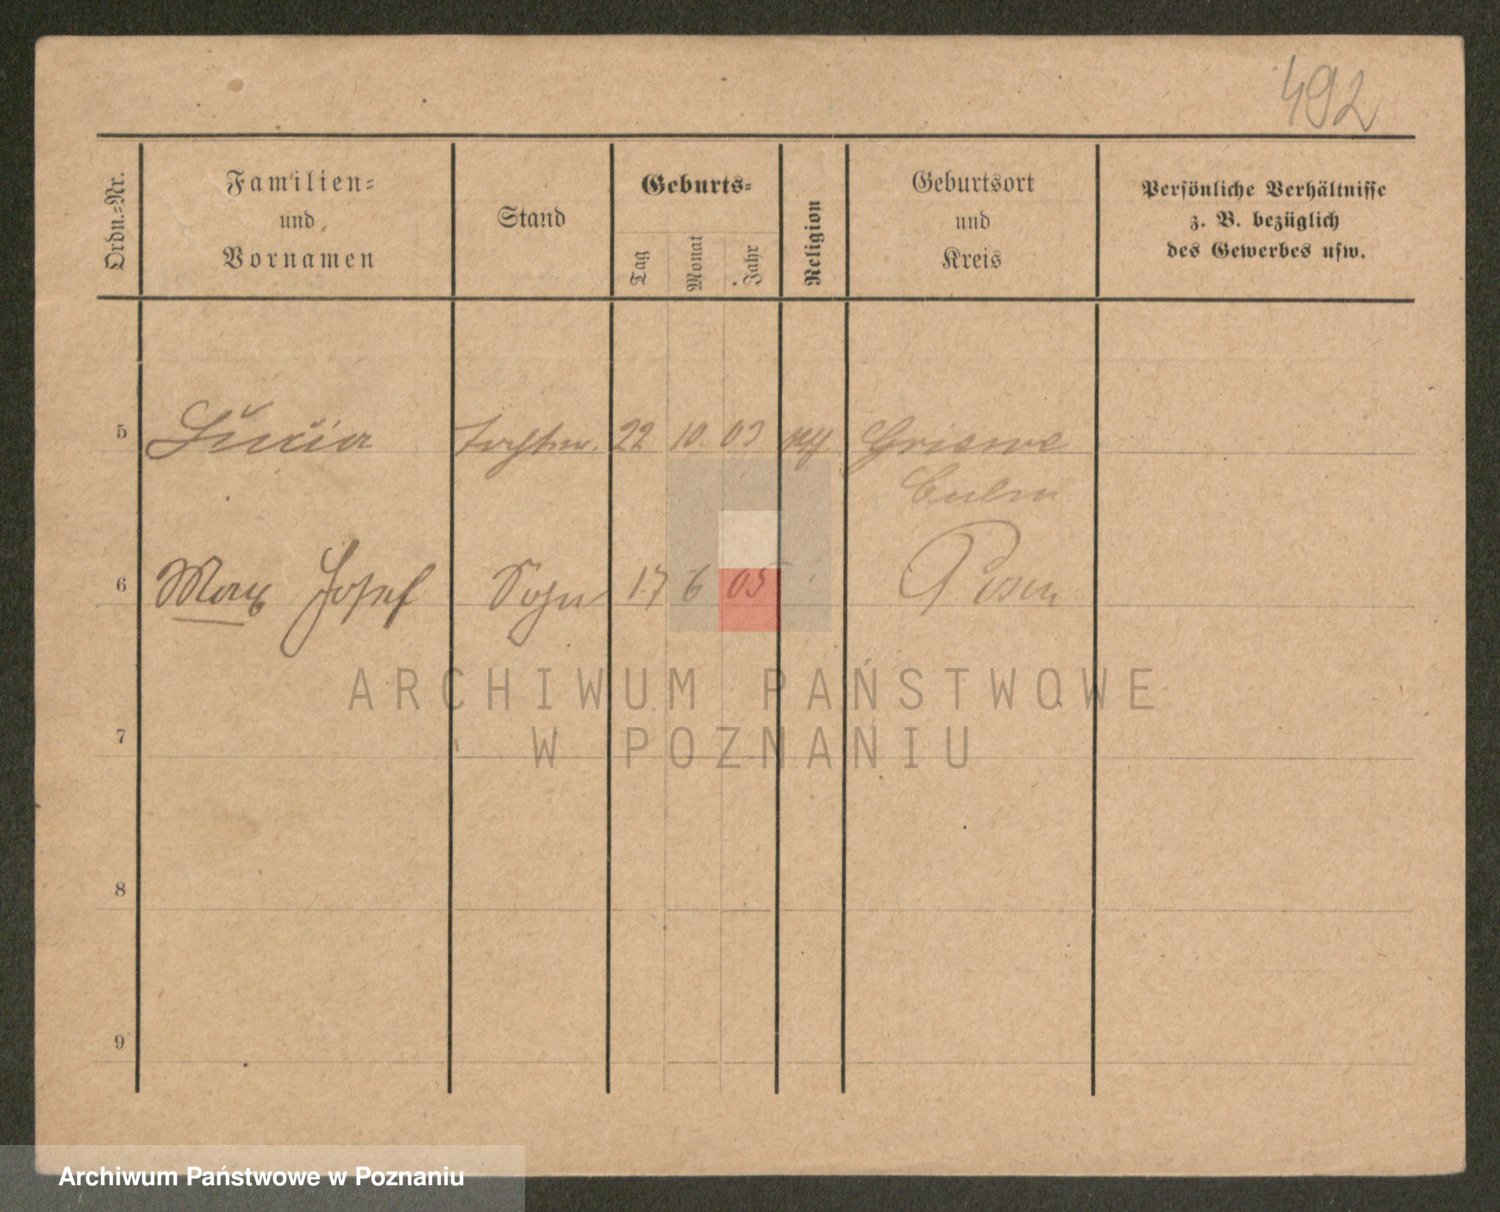 492
Ordn.=Nr.
Familien=
und
Vornamen
Stand
Geburts=
Tag
Monat
Jahr
Religion
Geburtsort
und
Kreis
Persönliche Verhältnisse
z. B. bezüglich
des Gewerbes usw.
5 Lucia Tochter. 22 10. 03
Culm
6 Max Josef Sohn 17 6 05 Posen
ARCHIWUM PAŃSTWOWE
W POZNANIU
7
8
9
Archiwum Państwowe w Poznaniu